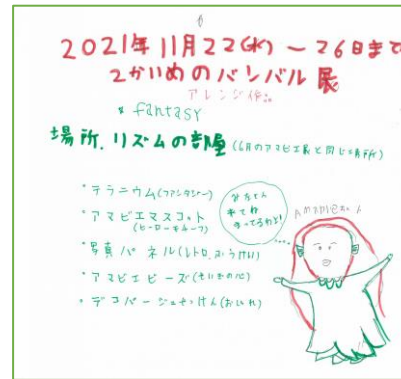 2021年 11月22(水)～26日まで
2かいめの バンバル 展
アレンジ作品
* fantasy
場所、リズムの部屋 (6月のアマビエ展と同じ場所)
・テラニウム(ファンタジー)
・アマビエマスコット
(ヒーローモチーフ)
・写真パネル(レトロ、ふうけい)
・アマビエビーズ
・デコパージュせっけん(おしゃれ)
みなさん
きてね
まってるわよ!